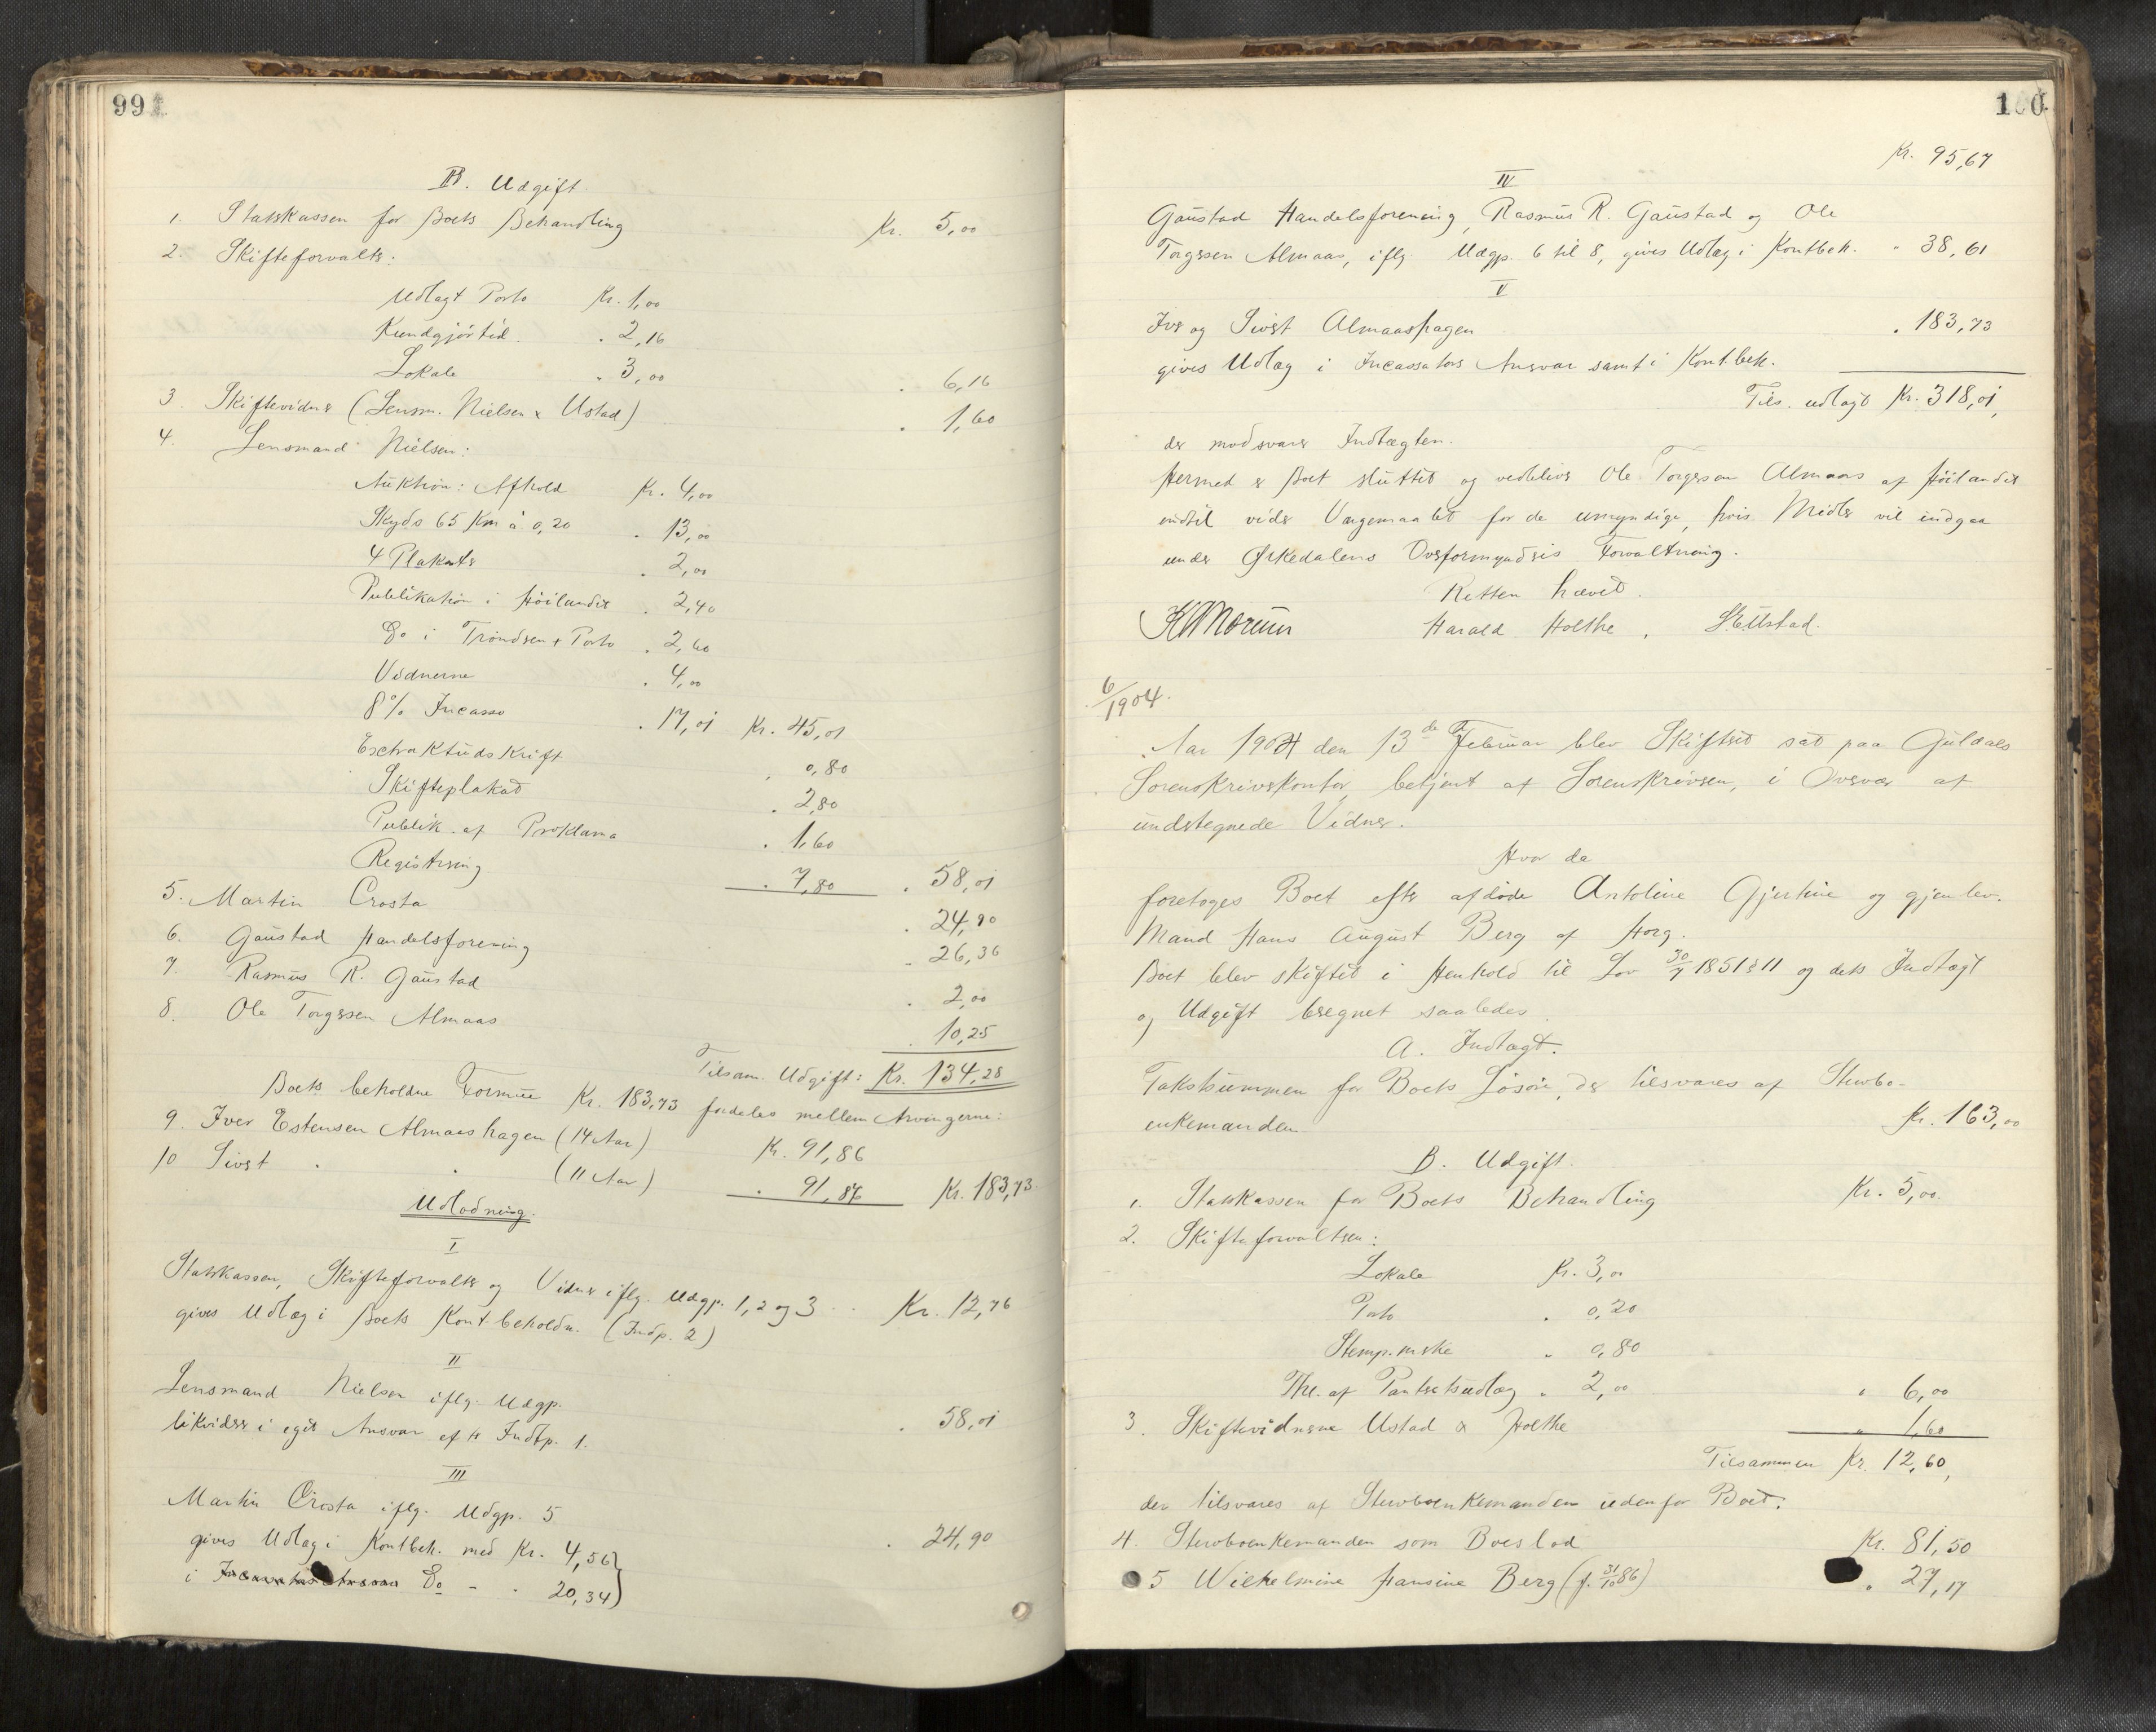 99
B. Udgift.
1. Statskassen for Boets Behandling Kr. 5,00
2. Skifteforvalt:
Udlagt Porto Kr. 1,00
Kundgjörtid. " 2,16
Lokale " 3,00 " 6,16
3 Skiftevidner (Lensm. Nielsen & Ustad) " 1,60
4. Lensmand Nielsen:
Auktion: Afhold Kr. 4,00
Skyds 65 Km à 0,20 " 13,00
4 Plakater " 2,00
Publikation i Höilandet " 2,40
Do i Trondsen + Porto " 2,60
Vidnerne " 4,00
8% Incasso " 17,01 Kr. 45,01
Extraktudskrift " 0,80
Skifteplakat " 2,80
Publik. af Proklama " 1,60
Registrering " 7,80 " 58,01
5. Martin Crosta " 24,90
6. Gaustad Handelsforening " 26,36
7. Rasmus R. Gaustad " 2,00
8. Ole Torgersen Almaas " 10,25
Tilsam. Udgift: Kr. 134,28
Boets beholdne Formue Kr. 183,73 fordeles mellem Arvingerne:
9. Iver Estensen Almaashagen (14 Aar) Kr. 91,86
10 Sivert " " (11 Aar) " 91,86 Kr. 183,73
Udlodning.
I
Statskassen, Skifteforvalter og Vidner iflg. Udgp. 1, 2 og 3 .. Kr. 12,76
gives Udlæg i Boets Kontbeholdn. (Indp. 2)
II
Lensmand Nielsen iflg. Udgp.
likviderer i eget Ansvar eftr Indtp. 1. " 58,01
III
Martin Crosta iflg. Udgp. 5
gives Udlæg i Kontbeh. med Kr. 4,56) " 24,90
i Incassators Ansvar Do - " 20,34)
100
Kr. 95,67
IV
Gaustad Handelsforening, Rasmus R. Gaustad og Ole
Torgersen Almaas, iflg. Udgp. 6 til 8, gives Udlæg i Kontbeh. " 38,61
V
Iver og Sivert Almaashagen " 183,73
gives Udlæg i Incassators Ansvar samt i Kontbeh.
Tils. udlagt Kr. 318,01,
der modsvarer Indtægten.
Hermed er Boet sluttet og vedbliver Ole Torgersen Almaas af Höilandet
indtil videre Værgemaalet for de umyndige, hvis Midler vil indgaa
under Ørkedalens Overformynderis Forvaltning.
Retten hævet.
Harald Holthe, S. E. Ustad.
6/1904.
Aar 1904 den 13de Februar blev Skifteret sat paa Guldals
Sorenskriverkontor, betjent af Sorenskriveren, i Overvær af
undertegnede Vidner.
Hvor da
foretoges Boet efter afdöde Antoline Gjertine og gjenlev.
Mand Hans August Berg af Horg.
Boet blev skiftet i Henhold til Lov 30/7 1851 § 11 og dets Indtægt
og Udgift beregnet saaledes.
A. Indtægt.
Takstsummen for Boets Lösöre, der tilsvares af Stervbo-
enkemanden Kr. 163,00
B. Udgift.
1. Statskassen for Boets Behandling Kr. 5,00
2. Skifteforvalteren:
Lokale Kr. 3,00
Porto " 0,20
Stemp. mrke " 0,80
Thl. af Panteretsudlæg " 2,00 " 6,00
3. Skiftevidnerne Ustad & Holthe " 1,60
Tilsammen Kr. 12,60,
der tilsvares af Stervboenkemanden udenfor Boet:
4. Stervboenkemanden som Boeslod Kr. 81,50
5 Wilhelmine Hansine Berg (f. 31/10 86) " 27,17